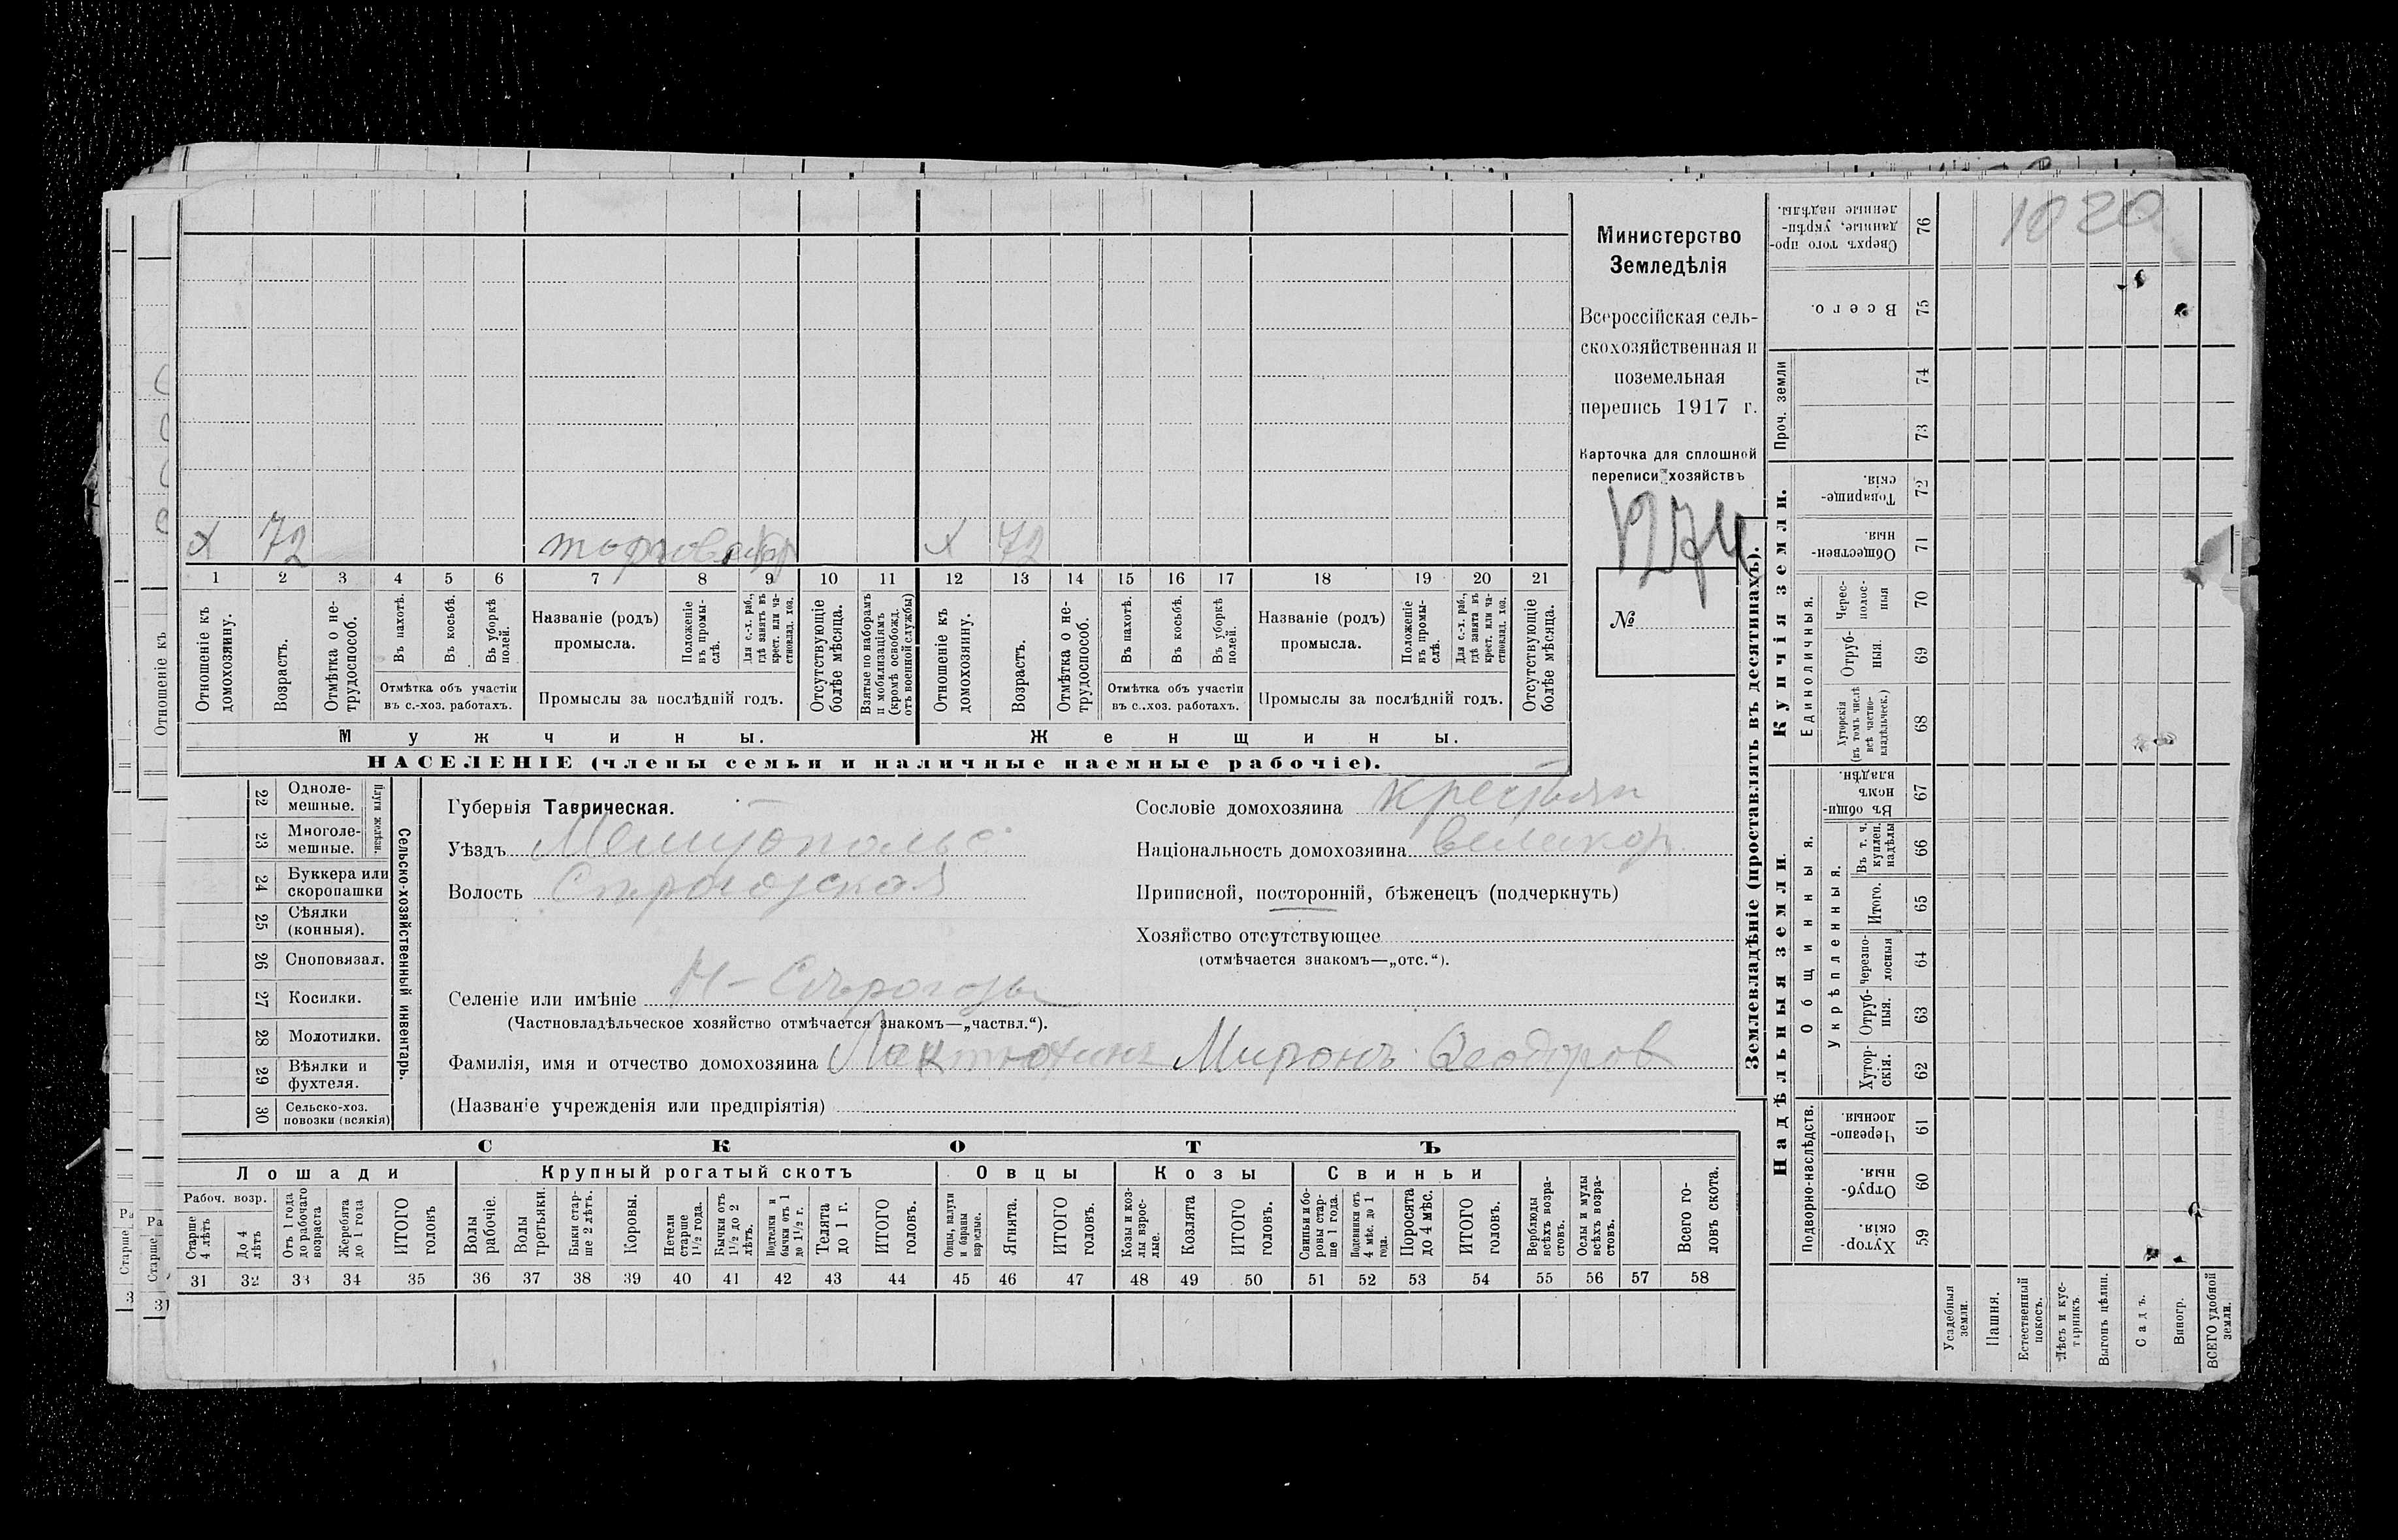 1020
Министерство
Земледѣлія
Всероссійская сель-
скохозяйственная и
поземельная
перепись 1917 г.
Карточка для сплошной
переписи хозяйствъ
1274
№
х 72 х 72
1 2 3 4 5 6 7 8 9 10 11 12 13 14 15 16 17 18 19 20 21
Отношеніе къ домохозяину.
Возрастъ.
Отмѣтка о не-трудоспособ.
Въ пахотѣ.
Въ косьбѣ.
Въ уборкѣ полей.
Отмѣтка объ участіи
въ с.-хоз. работахъ.
Названіе (родъ)
промысла.
Положеніе въ промы-слѣ.
Для с.-х. раб., гдѣ занятъ въ крест. или ча-стновлад. хоз.
Промыслы за послѣдній годъ.
Отсутствующіе болѣе мѣсяца.
Взятые по наборамъ и мобилизаціямъ (кромѣ освобожд. отъ военной службы)
Отношеніе къ домохозяину.
Возрастъ.
Отмѣтка о не-трудоспособ.
Въ пахотѣ.
Въ косьбѣ.
Въ уборкѣ полей.
Отмѣтка объ участіи
въ с.-хоз. работахъ.
Названіе (родъ)
промысла.
Положеніе въ промы-слѣ.
Для с.-х. раб., гдѣ занята въ крест. или ча-стновлад. хоз.
Промыслы за послѣдній годъ.
Отсутствующіе болѣе мѣсяца.
Мужчины. Женщины.
НАСЕЛЕНІЕ (члены семьи и наличные наемные рабочіе).
Сельско-хозяйственный инвентарь.
Плуги желѣзн.
22 Одноле-мешные.
23 Многоле-мешные.
24 Буккера или скоропашки
25 Сѣялки (конныя).
26 Сноповязал.
27 Косилки.
28 Молотилки.
29 Вѣялки и фухтеля.
30 Сельско-хоз. повозки (всякія)
Губернія Таврическая.
Уѣздъ Мелитопольс
Волость
Селеніе или имѣніе Н-Сѣрогозы
(Частновладѣльческое хозяйство отмѣчается знакомъ—„частвл.“).
Фамилія, имя и отчество домохозяина Лактюхинъ Миронъ Ѳеодоров
(Названіе учрежденія или предпріятія)
Сословіе домохозяина крестьян
Національность домохозяина великор.
Приписной, посторонній, бѣженецъ (подчеркнуть)
Хозяйство отсутствующее
(отмѣчается знакомъ—„отс.“).
СКОТЪ
Лошади Крупный рогатый скотъ Овцы Козы Свиньи
Рабоч. возр.
Старше 4 лѣтъ
До 4 лѣтъ
Отъ 1 года до рабочаго возраста
Жеребята до 1 года
ИТОГО головъ
Волы рабочіе.
Волы третьяки.
Быки стар-ше 2 лѣтъ.
Коровы.
Нетели старше 1½ года.
Бычки отъ 1½ до 2 лѣтъ.
Подтелки и бычки отъ 1 до 1½ г.
Телята до 1 г.
ИТОГО головъ.
Овцы, валухи и бараны взрослые.
Ягнята.
ИТОГО головъ.
Козы и коз-лы взрос-лые.
Козлята
ИТОГО головъ.
Свиньи и бо-ровы стар-ше 1 года.
Подсвинки отъ 4 мѣс. до 1 года.
Поросята до 4 мѣс.
ИТОГО головъ.
Верблюды всѣхъ возра-стовъ.
Ослы и мулы всѣхъ возра-стовъ.
Всего го-ловъ скота.
31 32 33 34 35 36 37 38 39 40 41 42 43 44 45 46 47 48 49 50 51 52 53 54 55 56 57 58
Землевладѣніе (проставлять въ десятинахъ).
Надѣльныя земли. Купчія земли. Проч. земли
Подворно-наслѣдств.
Общинныя.
Укрѣпленныя.
Единоличныя.
59 Хутор-скія.
60 Отруб-ныя.
61 Черезпо-лосныя.
62 Хутор-скія.
63 Отруб-ныя.
64 Черезпо-лосныя
65 Итого.
66 Въ т. ч. куплен. надѣлы
67 Въ общин-номъ владѣн.
68 Хуторскія (въ томъ числѣ всѣ частно-владѣльческ.)
69 Отруб-ныя.
70 Черес-полос-ныя
71 Обществен-ныя.
72 Товарище-скія.
73
74
75 Всего.
76 Сверхъ того про-данные, укрѣп-ленные надѣлы.
Усадебныя земли.
Пашня.
Естественный покосъ.
Лѣсъ и кус-тарникъ.
Выгонъ цѣлин.
Садъ.
Виногр.
ВСЕГО удобной земли.